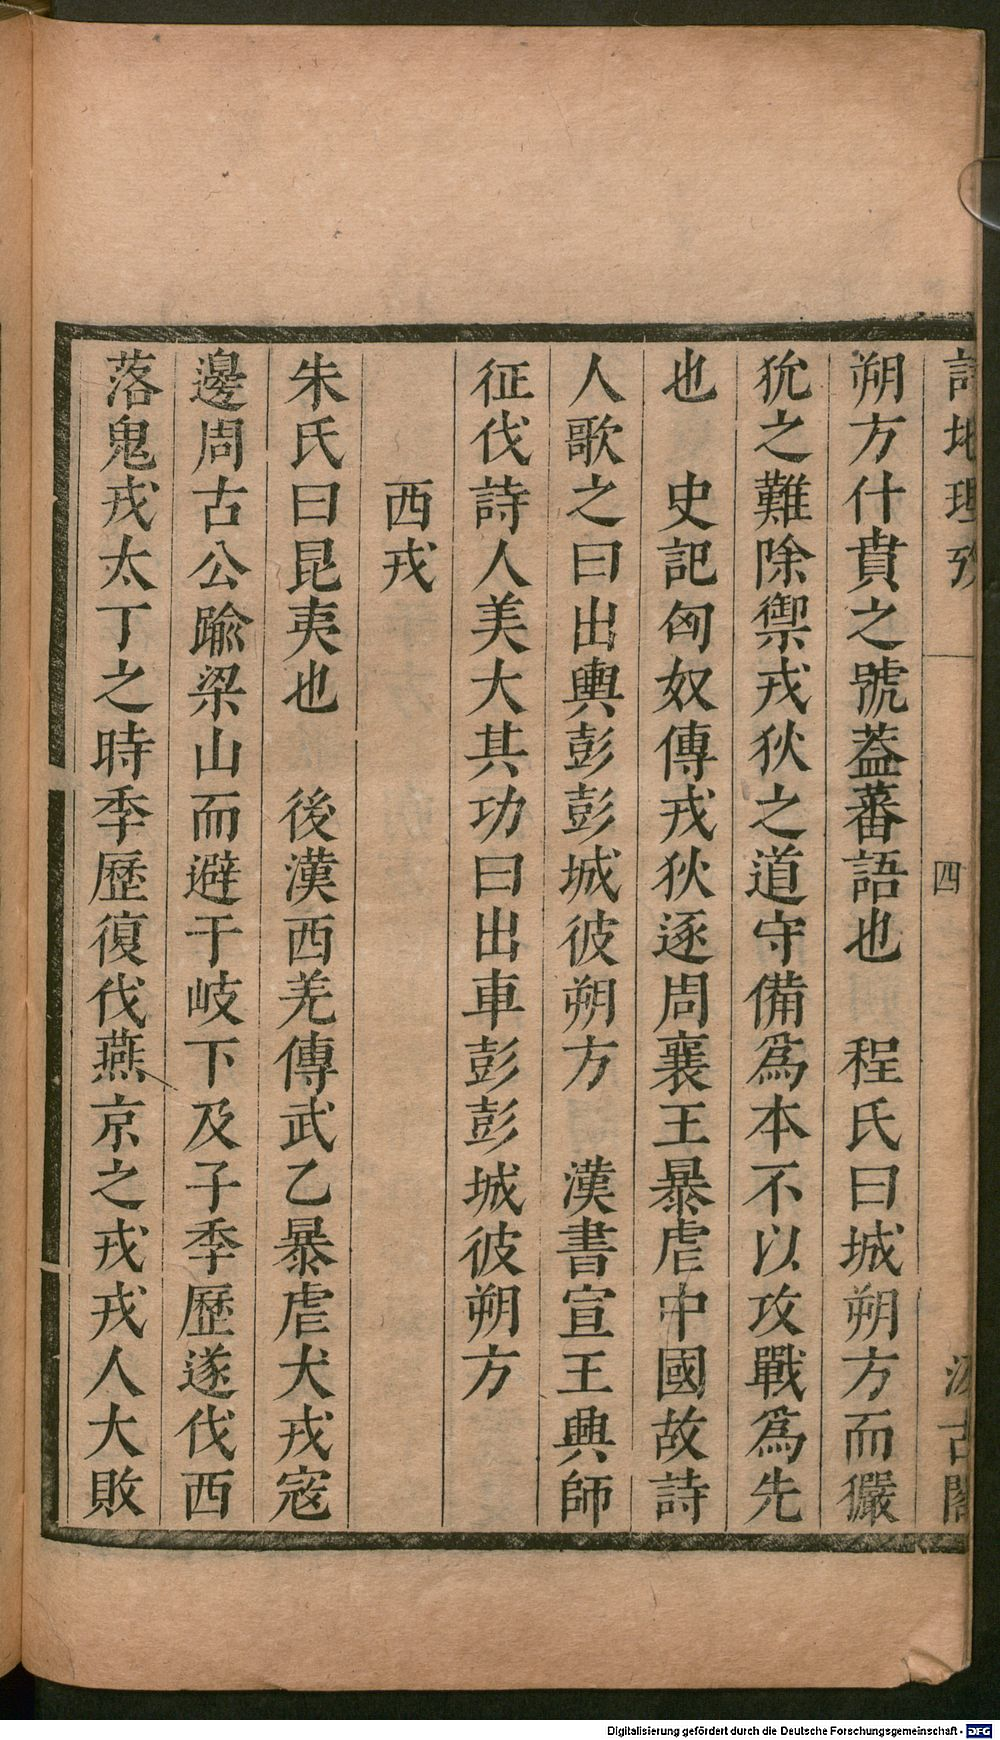 詩地理攷
四
汲古閣
朔方什賁之號蓋蕃語也　程氏曰城朔方而玁
狁之難除禦戎狄之道守備爲本不以攻戰爲先
也　史記匈奴傳戎狄逐周襄王暴虐中國故詩
人歌之曰出輿彭彭城彼朔方　漢書宣王興師
征伐詩人美大其功曰出車彭彭城彼朔方
西戎
朱氏曰昆夷也　後漢西羌傳武乙暴虐犬戎寇
邊周古公踰梁山而避于岐下及子季歷遂伐西
落鬼戎太丁之時季歷復伐燕京之戎戎人大敗
Digitalisierung gefördert durch die Deutsche Forschungsgemeinschaft - DFG